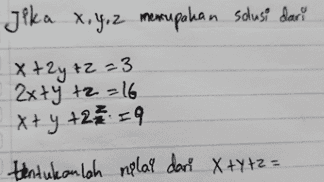 Jika x,y,z merupakan solusi dari
x + 2y + z = 3
2x + y + z = 16
x + y + 2z = 9
tentukanlah nilai dari x + y + z =